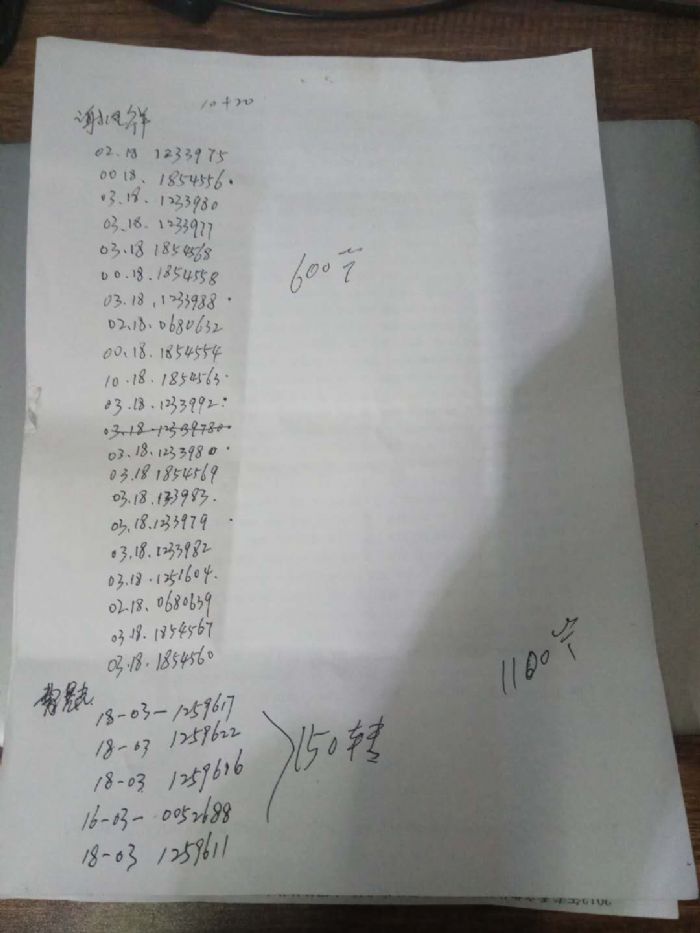 10+20
02.18 1233975
00 18. 1854556.
03.18. 1233980
03.18. 1233977
03.18 1854568
00.18.1854558
03.18.1233988.
02.18.0680632
00.18.1854554
10.18.1854563.
03.18.1233992.
03.18.12339780
03.18.1233980.
03.18 1854569
03.18.133983.
03.18.1233979.
03.18.1233982
03.18.1251604.
02.18.0680639
03.18.1854567
03.18.1854560
600个
1100个
18-03-1259617
18-03 1259622
18-03 1259606
16-03-0052688
18-03 1259611
150转